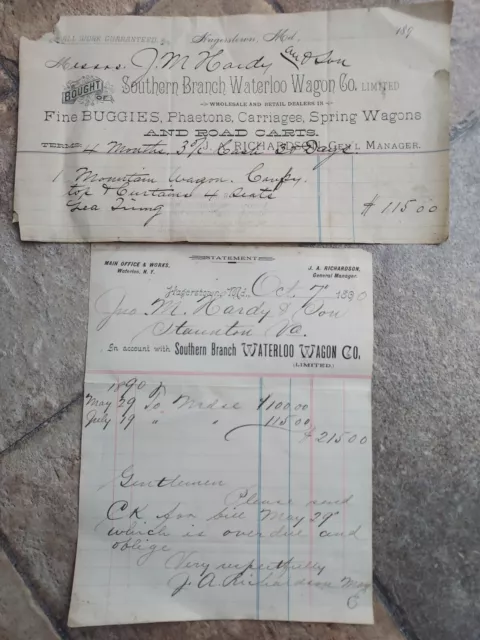 ALL WORK GUARANTEED
Hagerstown, Md. 189
Messrs J. M Hardy and Son
BOUGHT OF
Southern Branch Waterloo Wagon Co. LIMITED
WHOLESALE AND RETAIL DEALERS IN
Fine BUGGIES, Phaetons, Carriages, Spring Wagons
AND ROAD CARTS.
TERMS 4 Months, 3% Cash 30 Days J. A. RICHARDSON, GEN'L MANAGER.
1 Mountain Wagon. Canpy
top & Curtains 4 Seats
Lea Trimg $115.00
STATEMENT
MAIN OFFICE & WORKS,
Waterloo, N. Y.
J. A. RICHARDSON,
General Manager
Hagerstown, Md., Oct 7" 1890
Jno. M. Hardy & Son
Staunton Va.
In account with Southern Branch WATERLOO WAGON CO.
(LIMITED.)
1890
May 29 To Mdse $100.00
July 19 " " 115.00
$215.00
Gentlemen
Please send
CK. for bill May 29"
which is over due and
oblige
Very respectfully
J. A Richardson